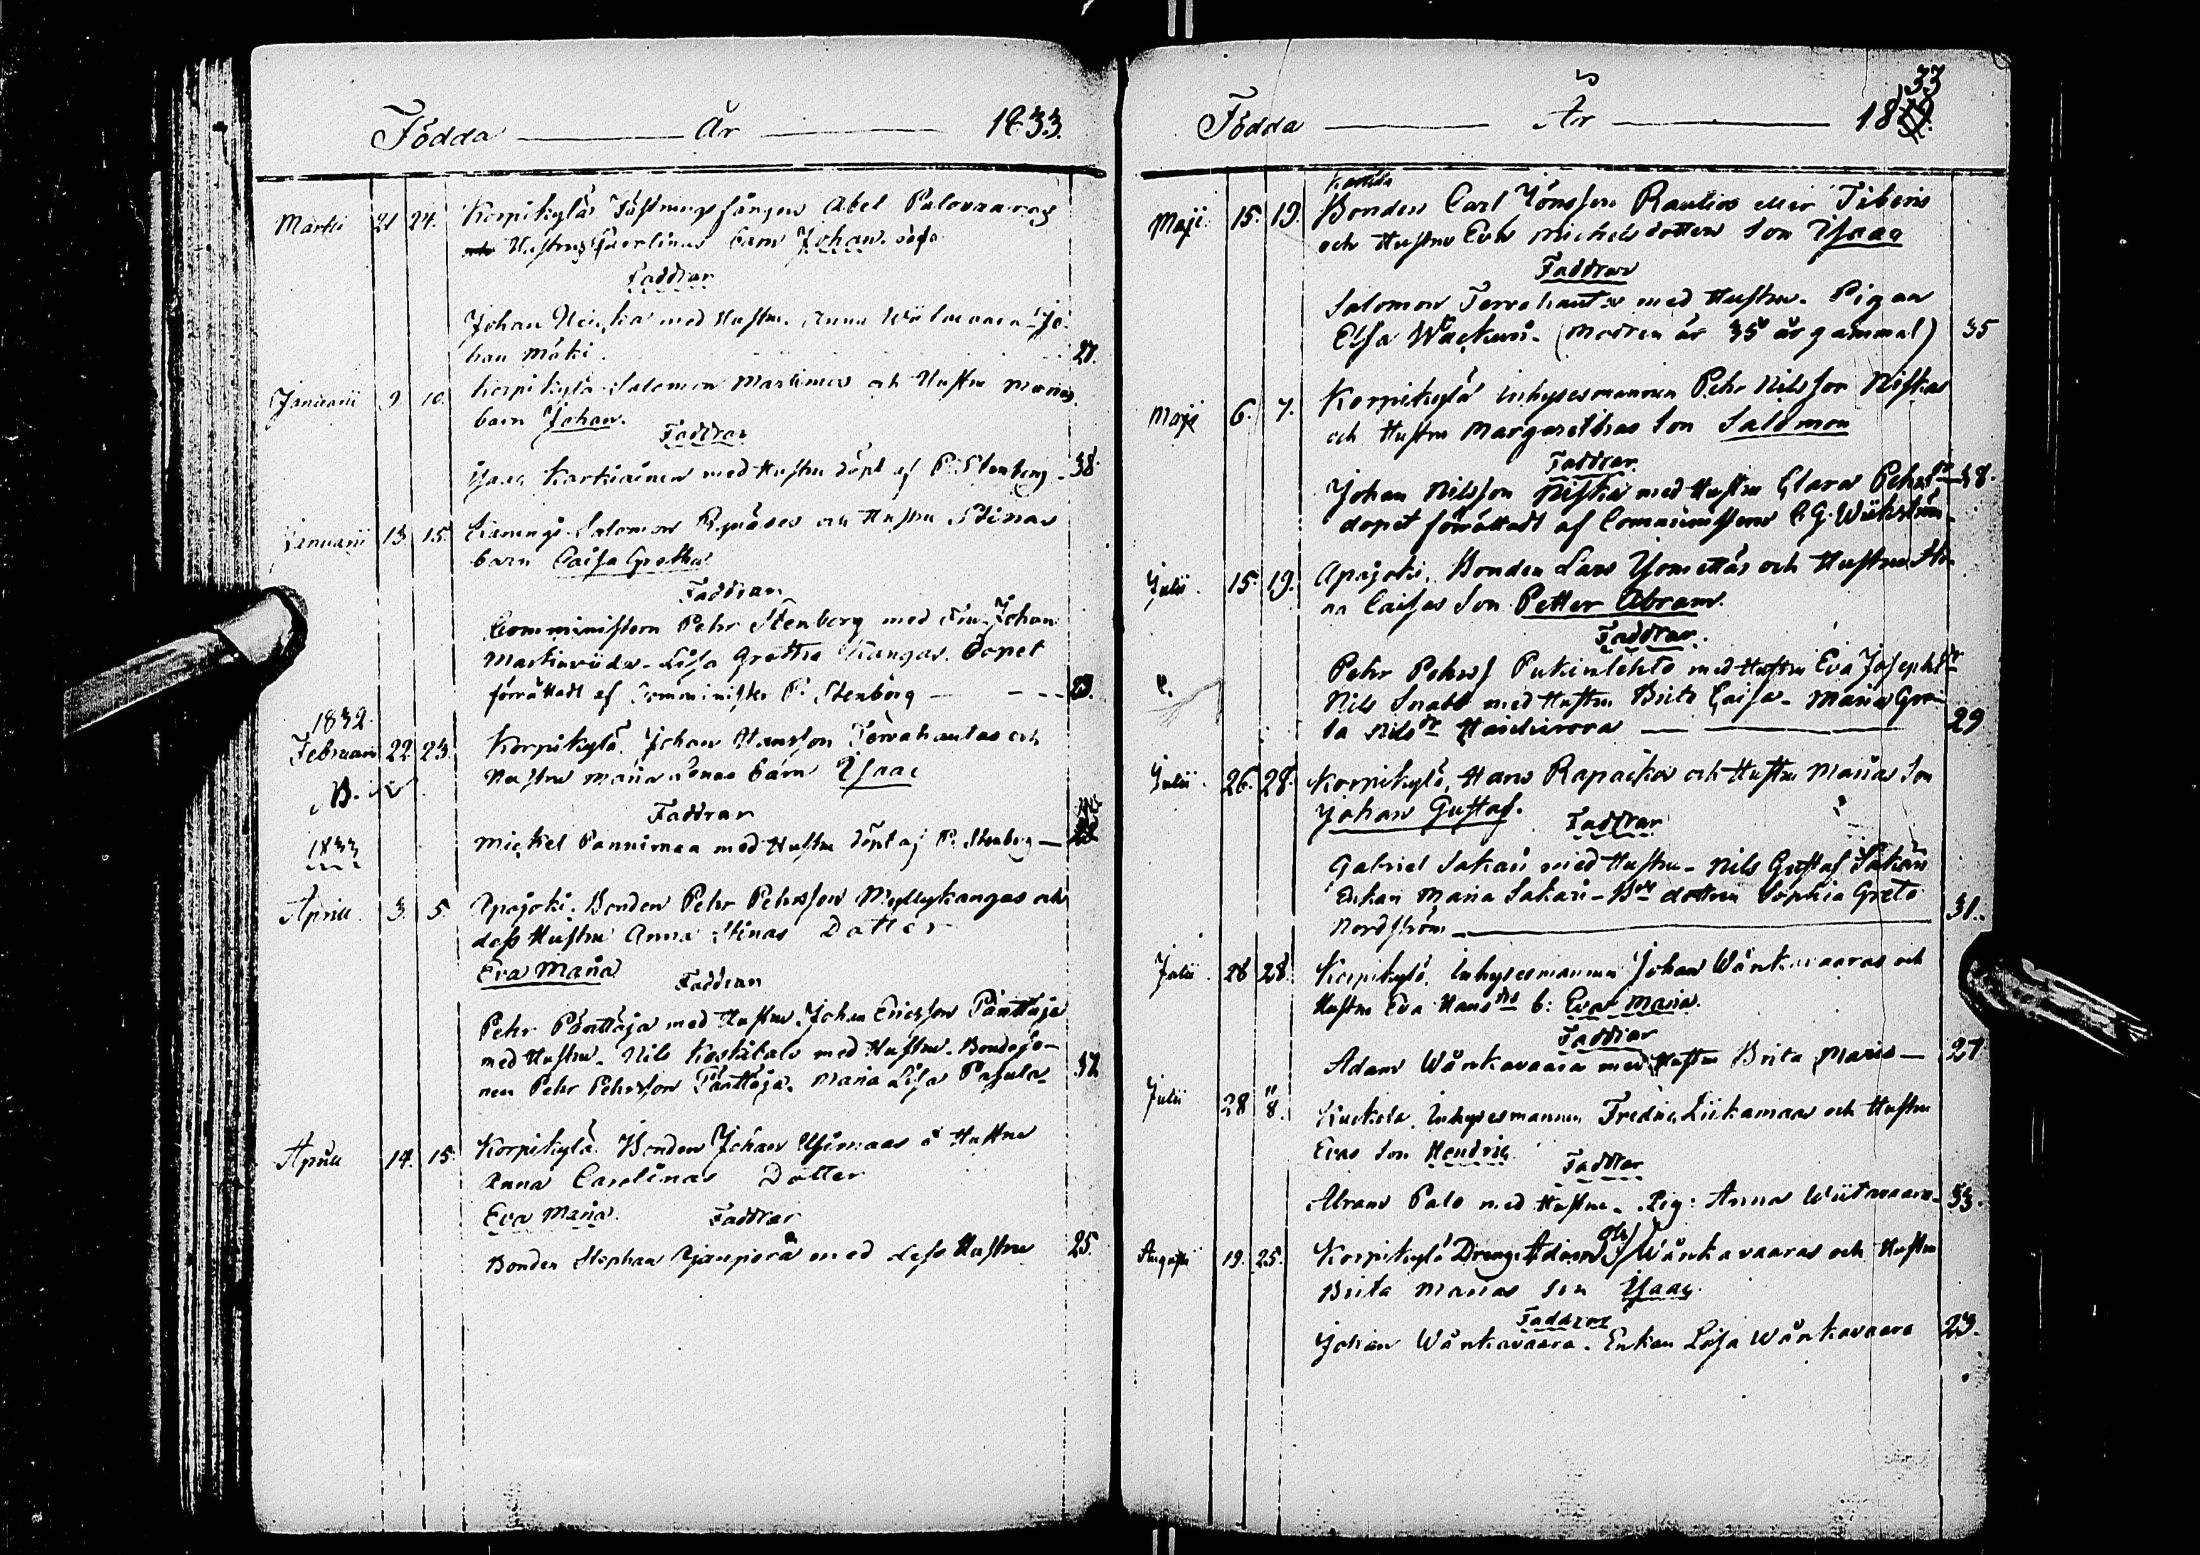 Födda — År — 1833.
Martii 21 24. Korpikylä Fästnings fången Abel Palovaaras
Hustrus barn Johan
Faddrar
Johan med Hustru. Anna - Jo-
han Mäki. 27.
Januarii 9. 10. Korpikylä Salomon Martimos och Hustru Marias
barn Johan.
Faddrar
Isaac Karkiainen med Hustru döpt af P. Stenberg - 38
Januarii 13. 15. Salomon och Hustru Stinas
barn Caisa Greta
Faddrar
Comministern Pehr Stenberg med Fru. Johan
Lisa Greta Kangas. Dopet
förrättadt af Comminister P. Stenberg
1832.
Februarii 22. 23. Korpikylä. Johan Hansson Tervahautas och
Hustru Maria barn Isaac
N.B.
Faddrar
Mickel Pannimaa med Hustru döpt af P. Stenberg —
1833
Aprill 3. 5. Apajoki. Bonden Pehr Pehrsson Myllykangas och
dess Hustru Anna Stinas Dotter
Eva Maria
Faddrar
Pehr Pänttäjä med Hustru. Johan Ericsson Pänttäjä
med Hustru. Nils Koskitalo med Hustru. Bondeso-
nen Pehr Pehrsson Pänttäjä. Maria Lisa 32
Aprill 14. 15. Korpikylä. Bonden Johan o Hustru
Anna Carolinas Dotter
Eva Maria. Faddrar
Bonden Stephan med dess Hustru 25.
Födda — År — 1833
Maji. 15. 19. Bonden Carl Jönsson Rautios eller
och Hustru Eva Mickelsdotters Son Isaac
Faddrar
Salomon Tervahauta med Hustru. Pigan
Elsa (Modren är 35 år gammal) 35
Maji 6. 7. Korpikylä Inhysesmannen Pehr Nilsson Niskas
och Hustru Margarethas Son Salomon
Faddrar
Johan Nilsson Niska med Hustru Clara Pehrsdr 38.
dopet förrättadt af Comministern C. G.
Julii. 15. 19. Apajoki. Bonden Lars och Hustru Sti-
na Caisas Son Petter Abram.
Faddrar.
Pehr Pehrss Pukinlehto med Hustru Eva Josephsdr
Nils Snabb med Hustru Brita Caisa. Maria Gre-
ta Nilsdr 29
Julii. 26. 28. Korpikylä, Hans Rapackos och Hustru Marias Son
Johan Gustaf. Faddrar
Gabriel Sakari med Hustru - Nils Gustaf Sakari
Enkan Maria Sakari - dottern Sophia Greta
Nordström — 31.
Julii. 28 28. Korpikylä. Inhysesmannen Johan Wänkavaaras och
Hustru Eva Hansdrs b: Eva Maria.
Faddrar
Adam Wänkavaara med Hustru Brita Maria — 27
Julii 28 8. Kuckola. Inhysesmannen Fredric Liikamaas och Hustru
Evas Son Hendric
Faddrar
Abram Palo med Hustru. Pig: Anna 33.
Augusti 19. 25. Korpikylä Dreng. Adam Wänkavaaras och Hustru
Brita Marias Son Isaac.
Faddrar
Johan Wänkavaara. Enkan Lisa Wänkavaara 23.